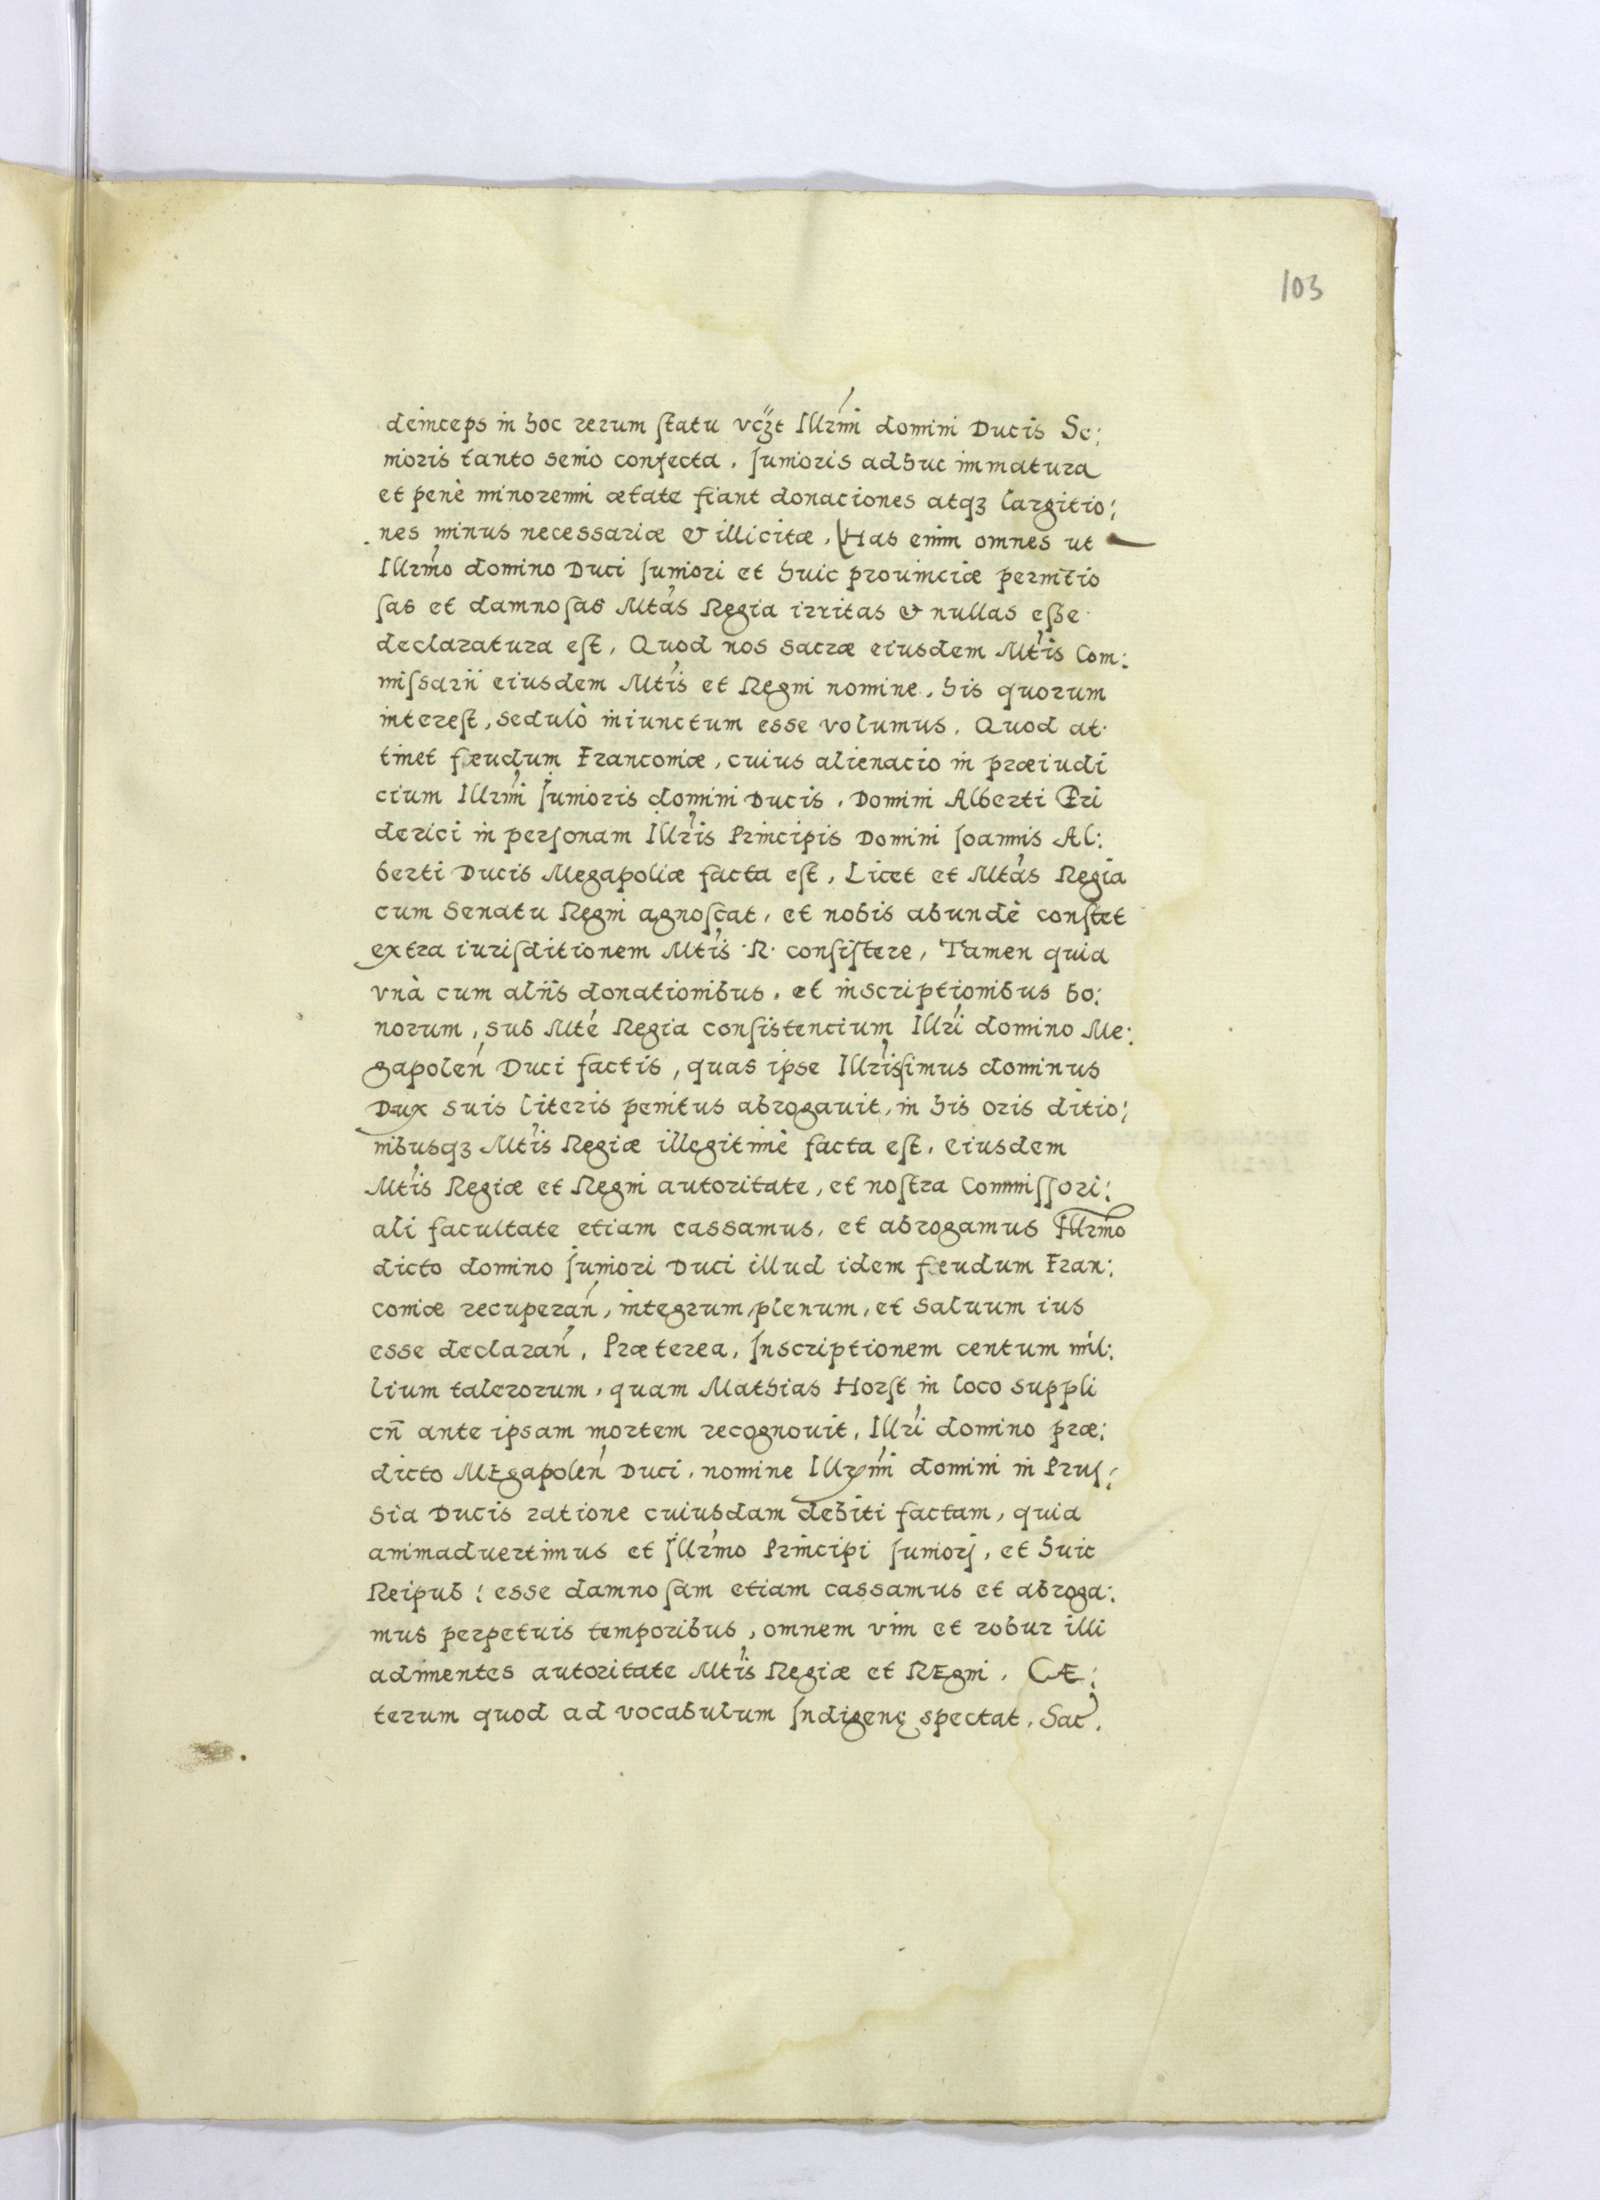 103
deinceps in hoc rerum statu vcꝫt Illrmi domini Ducis Se:
nioris tanto senio confecta, Junioris adhuc immatura
et penè minorenni ætate fiant donaciones atqꝫ largitio:
nes minus necessariæ & illicitæ, Has enim omnes ut
Illrmo domino Duci Juniori et huic prouinciæ pernitio
sas et damnosas Mtas Regia irritas & nullas esse
declaratura est, Quod nos sacræ eiusdem Mtis Com:
missarii eiusdem Mtis et Regni nomine, his quorum
interest, sedulò iniunctum esse volumus. Quod at
tinet fæudum Franconiæ, cuius alienacio in præiudi
cium Illrmi Junioris domini Ducis, Domini Alberti Fri
derici in personam Illris Principis Domini Joannis Al:
berti Ducis Megapoliæ facta est, Licet et Mtas Regia
cum Senatu Regni agnoscat, et nobis abundè constet
extra iurisditionem Mtis R. consistere, Tamen quia
vnà cum aliis donationibus, et inscriptionibus bo:
norum, sub Mte Regia consistencium Illri domino Me:
gapolen Duci factis, quas ipse Illrissimus dominus
Dux suis literis penitus abrogauit, in his oris ditio:
nibusqꝫ Mtis Regiæ illegitimè facta est, eiusdem
Mtis Regiæ et Regni autoritate, et nostra Commissori:
ali facultate etiam cassamus, et abrogamus Illrmo
dicto domino Juniori Duci illud idem fæudum Fran:
coniæ recuperan, integrum, plenum, et saluum ius
esse declaran. Præterea, Inscriptionem centum mil:
lium talerorum, quam Mathias Horst in loco suppli
cii ante ipsam mortem recognouit, Illri domino præ:
dicto MEgapolen Duci, nomine Illrmi domini in Prus:
sia Ducis ratione cuiusdam debiti factam, quia
animaduertimus et Illrmo Principi Juniorj, et huic
Reipub: esse damnosam etiam cassamus et abroga:
mus perpetuis temporibus, omnem vim et robur illi
adimentes autoritate Mtis Regiæ et REgni. CÆ:
terum quod ad vocabulum Indigenę spectat, Sac.